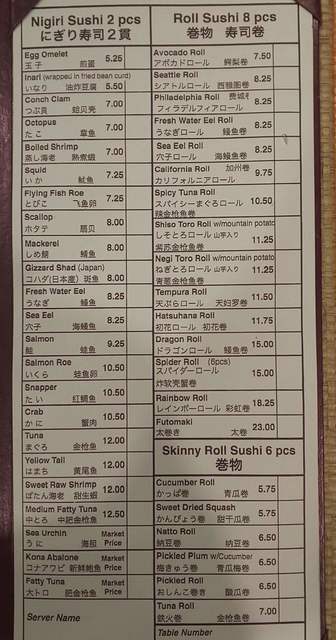 Nigiri Sushi 2 pcs
にぎり寿司２貫
Egg Omelet
玉子 煎蛋 5.25
Inari (wrapped in fried bean curd)
いなり 油炸豆腐 5.50
Conch Clam
つぶ貝 蛤贝壳 7.00
Octopus
たこ 章鱼 7.00
Boiled Shrimp
蒸し海老 熟煮蝦 7.00
Squid
いか 魷鱼 7.25
Flying Fish Roe
とびこ 飞鱼卵 7.25
Scallop
ホタテ 扇贝 8.00
Mackerel
しめ鯖 鯖鱼 8.00
Gizzard Shad (Japan)
コハダ(日本産) 斑鱼 8.00
Fresh Water Eel
うなぎ 鰻鱼 8.25
Sea Eel
穴子 海鰻鱼 8.25
Salmon
鮭 鲑鱼 9.25
Salmon Roe
いくら 鲑鱼卵 10.50
Snapper
たい 红鯛鱼 10.50
Crab
かに 蟹肉 10.50
Tuna
まぐろ 金枪鱼 12.00
Yellow Tail
はまち 黄尾鱼 12.00
Sweet Raw Shrimp
ぼたん海老 甜生蝦 12.00
Medium Fatty Tuna
中とろ 中肥金枪鱼 12.50
Sea Urchin Market
うに 海胆 Price
Kona Abalone Market
コナアワビ 新鮮鮑鱼 Price
Fatty Tuna Market
大トロ 肥金枪鱼 Price
Server Name
Roll Sushi 8 pcs
巻物 寿司卷
Avocado Roll
アボカドロール 鳄梨卷 7.50
Seattle Roll
シアトルロール 西雅图卷 8.25
Philadelphia Roll 费城卷
フィラデルフィアロール 8.25
Fresh Water Eel Roll
うなぎロール 鰻鱼卷 8.25
Sea Eel Roll
穴子ロール 海鰻鱼卷 8.25
California Roll 加州卷
カリフォルニアロール 9.75
Spicy Tuna Roll
スパイシーまぐろロール 10.50
辣金枪鱼卷
Shiso Toro Roll w/mountain potato
しそとろロール 山芋入り 11.25
紫苏金枪鱼卷
Negi Toro Roll w/mountain potato
ねぎとろロール 山芋入り 11.25
青葱金枪鱼卷
Tempura Roll
天ぷらロール 天妇罗卷 11.50
Hatsuhana Roll
初花ロール 初花卷 11.75
Dragon Roll
ドラゴンロール 鰻鱼卷 15.00
Spider Roll (6pcs)
スパイダーロール 15.00
炸软壳蟹卷
Rainbow Roll
レインボーロール 彩虹卷 18.25
Futomaki
太巻き 太卷 23.00
Skinny Roll Sushi 6 pcs
巻物
Cucumber Roll
かっぱ巻 青瓜卷 5.75
Sweet Dried Squash
かんぴょう巻 甜干瓜卷 5.75
Natto Roll
納豆巻 纳豆卷 6.50
Pickled Plum w/Cucumber
梅きゅう巻 青瓜梅卷 6.50
Pickled Roll
おしんこ巻き 酸瓜卷 6.50
Tuna Roll
鉄火巻 金枪鱼卷 7.00
Table Number